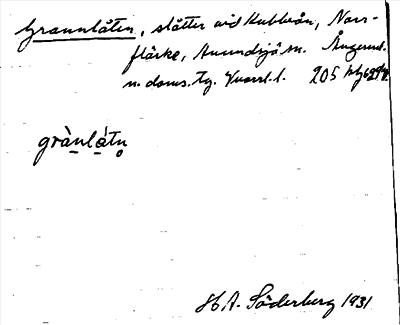 Grannlåten, slåtter vid Kubbeån, Norr-
flärke, Anundsjö sn. Ångerml.
n. doms. tg. Kvarrl. l. 205
grànlátn̥
H. A. Söderberg 1931